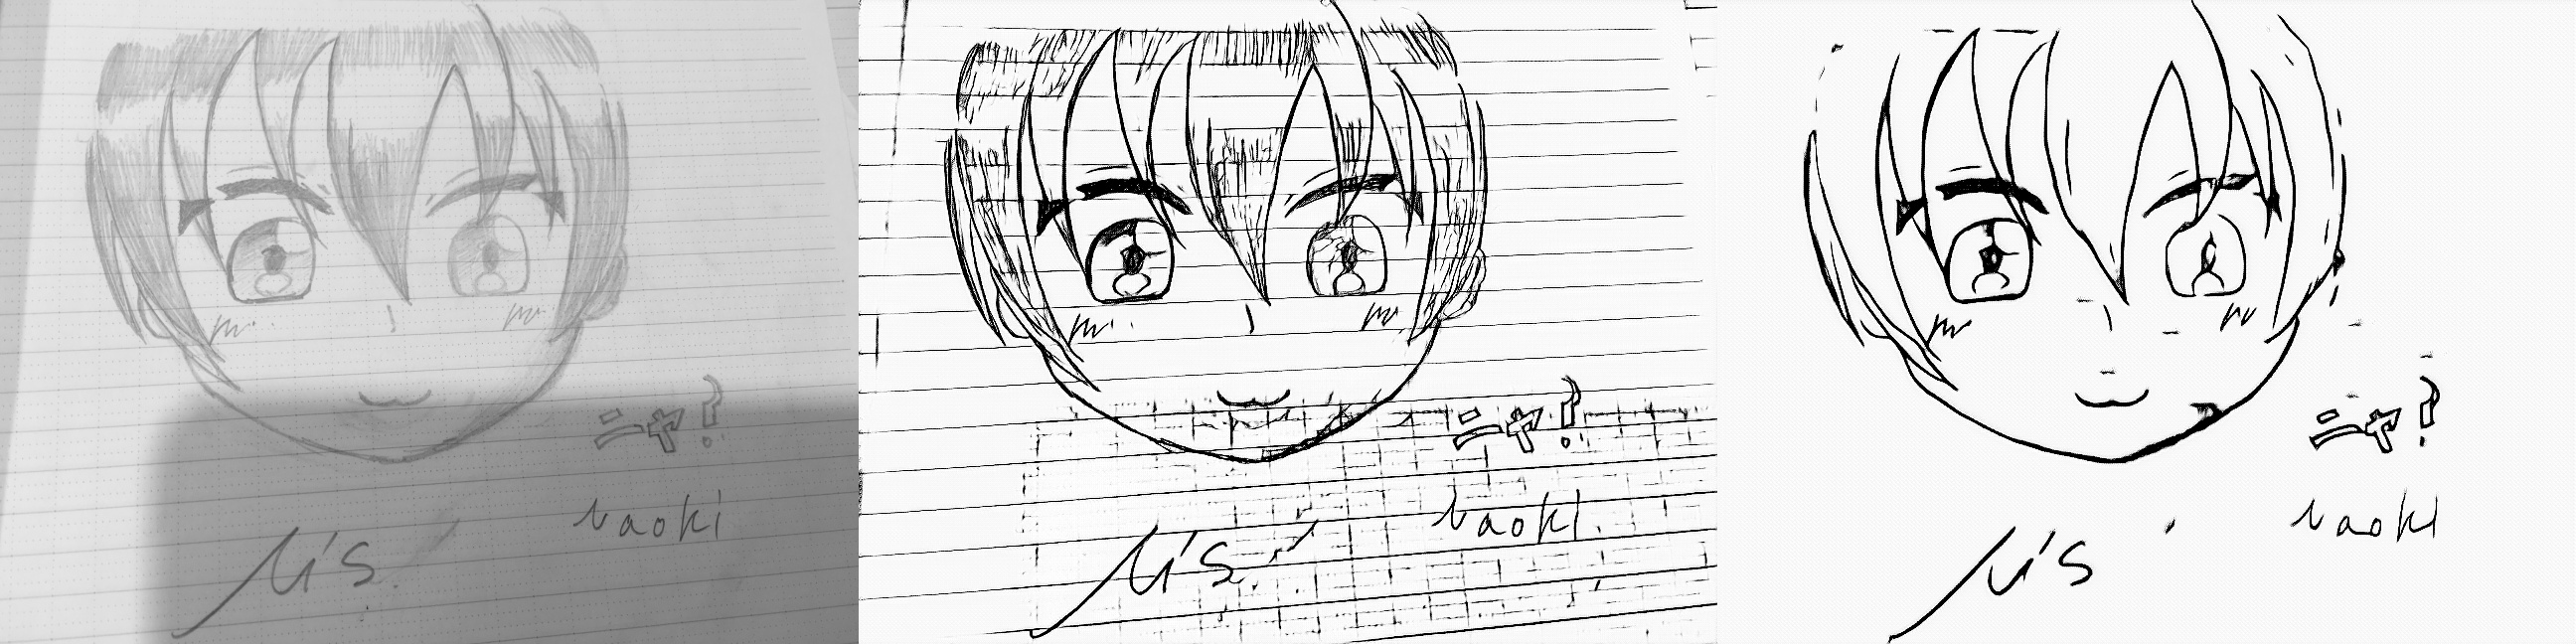 ニャ?
naoki
μ's
ニャ?
naoki
μ's
ニャ?
naoki
μ's